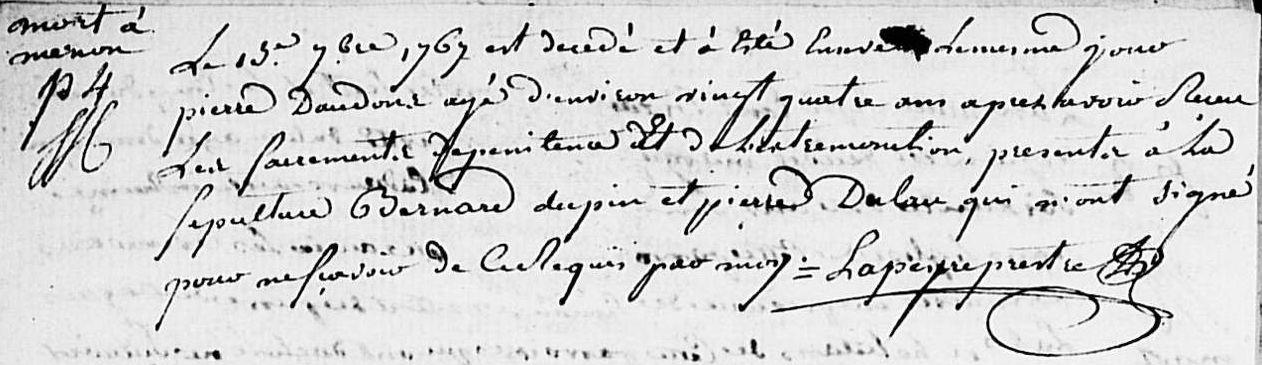 mort à
menon
p 4
Le 13.e 7.bre 1767 est decedé et à Eté Enseve Lemesme jour
pierre Daudons agé d'environ vingt quatre ans apres avoir Receu
Les sacrements depenitence Et de Lextremonction, presents à La
sepulture Bernard dupin et pierre Dulau qui n'ont signé
pour nescavoir de Ce Requis par moy = Lapeyre prestre